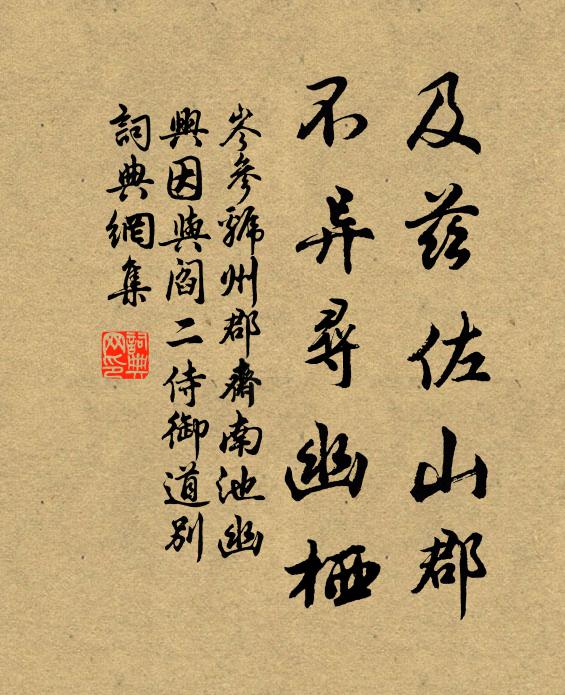 及茲佐山郡
不异尋幽栖
岑參虢州郡齋南池幽
興因與閻二侍御道別
詞典網集
詞典网印